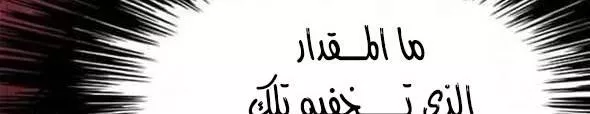 ما المـقدار
الذي تـخفيه تلك